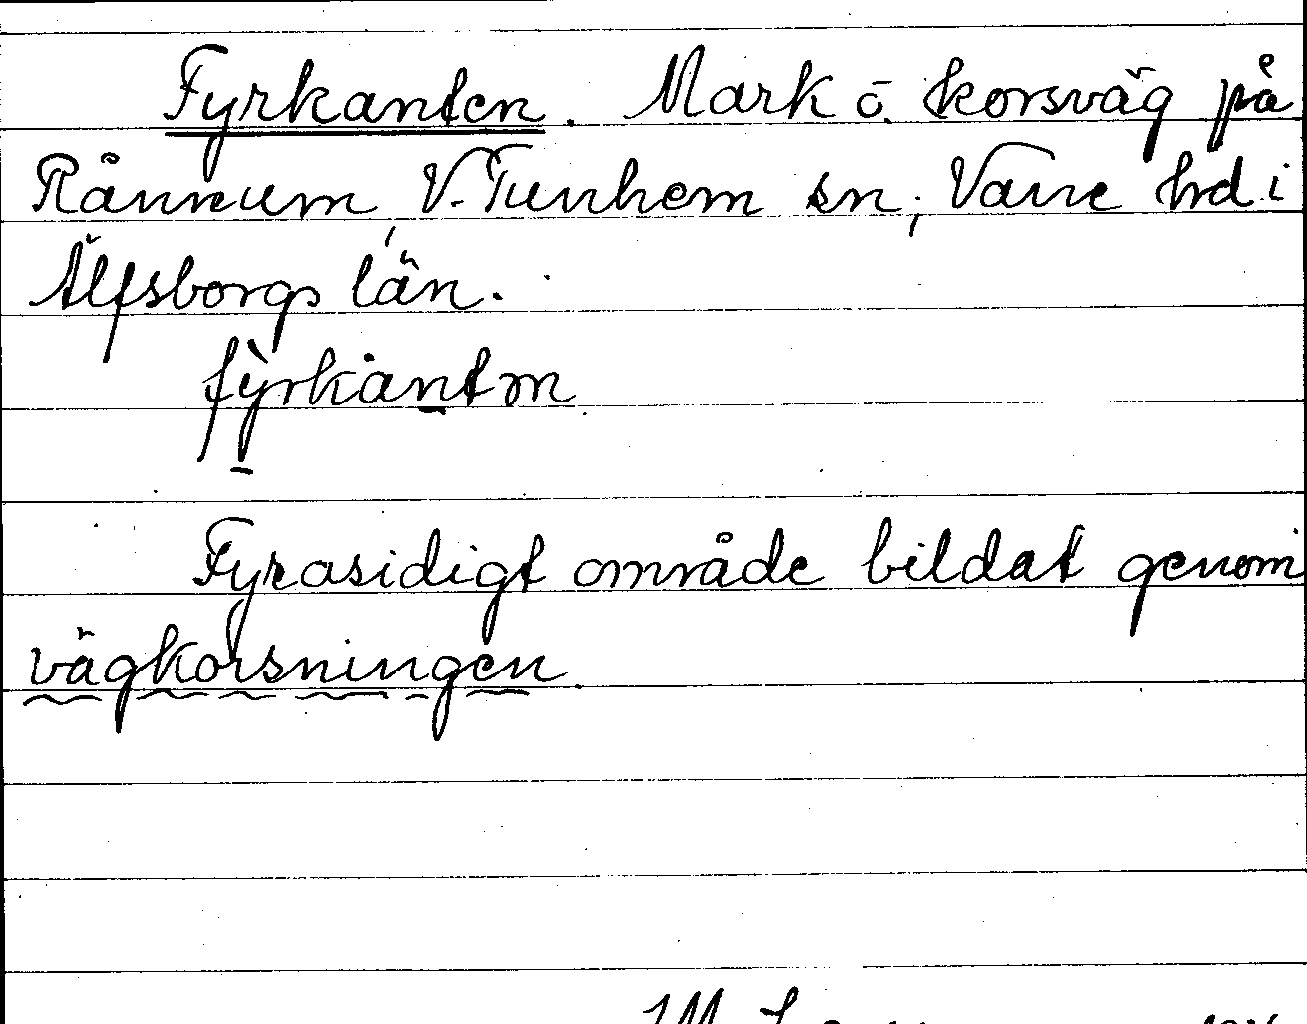 Fyrkanten. Mark o. korsväg på
Rånnum, V. Tunhem sn, Väne hd i
Älfsborgs län.
fy̠rkan̠tm
Fyrasidigt område bildat genom
vägkorsningen.